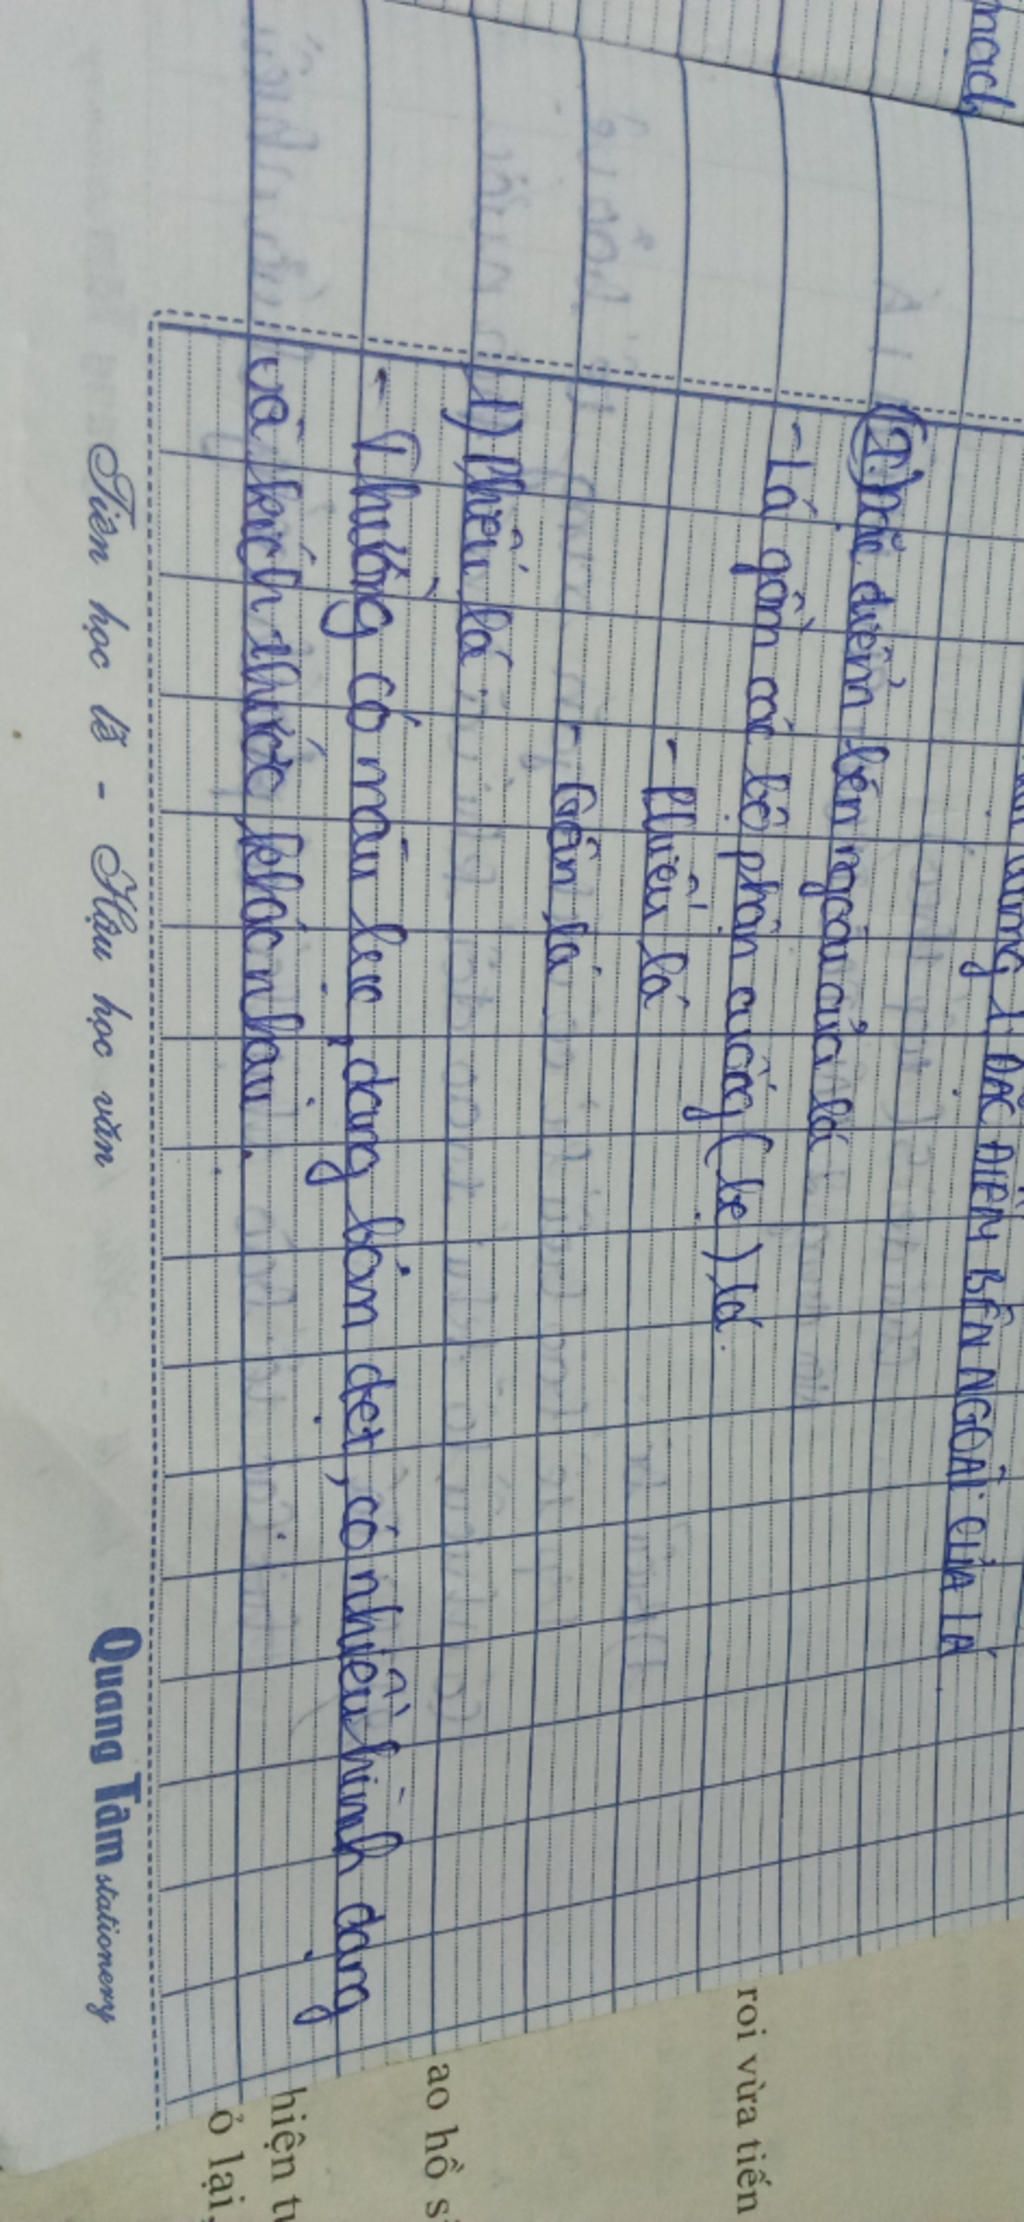 mạch
1. ĐẶC ĐIỂM BÊN NGOÀI CỦA LÁ
I.) Đặc điểm bên ngoài của lá
- Lá gồm các bộ phận cuống (bẹ) lá.
- Phiến lá
- Gân lá
1) Phiến lá
- Thường có màu lục, dạng bản dẹt, có nhiều hình dạng
và kích thước khác nhau.
Tiên học lễ - Hậu học văn
Quang Tâm stationery
roi vừa tiến
ao hồ
hiện
ỏ lại,